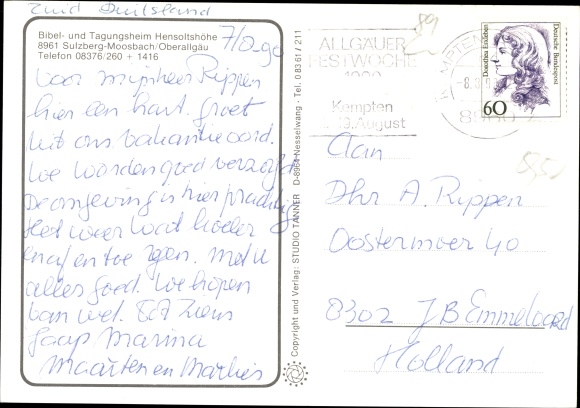 Zuid Duitsland
Bibel- und Tagungsheim Hensoltshöhe
8961 Sulzberg-Moosbach/Oberallgäu
Telefon 08376/260 + 1416
7/8.90
Voor mijnheer Rippen
hier een hart. groet
uit ons vakantieoord.
We worden goed verzorgd
De omgeving is hier prachtig
Het weer wat koeler
en af en toe regen. Met u
alles goed. We hopen
van wel. Tot ziens
Jaap Marina
Maarten en Marlies
Copyright und Verlag: STUDIO TANNER D-8964 Nesselwang - Tel. 08361/211
89
ALLGÄUER
FESTWOCHE
1990
Kempten
19. August
KEMPTEN
Dorothea Erxleben
Deutsche Bundespost
60
5,50
Aan
Dhr A. Rippen
Oostermoer 40
8302 JB Emmeloord
Holland